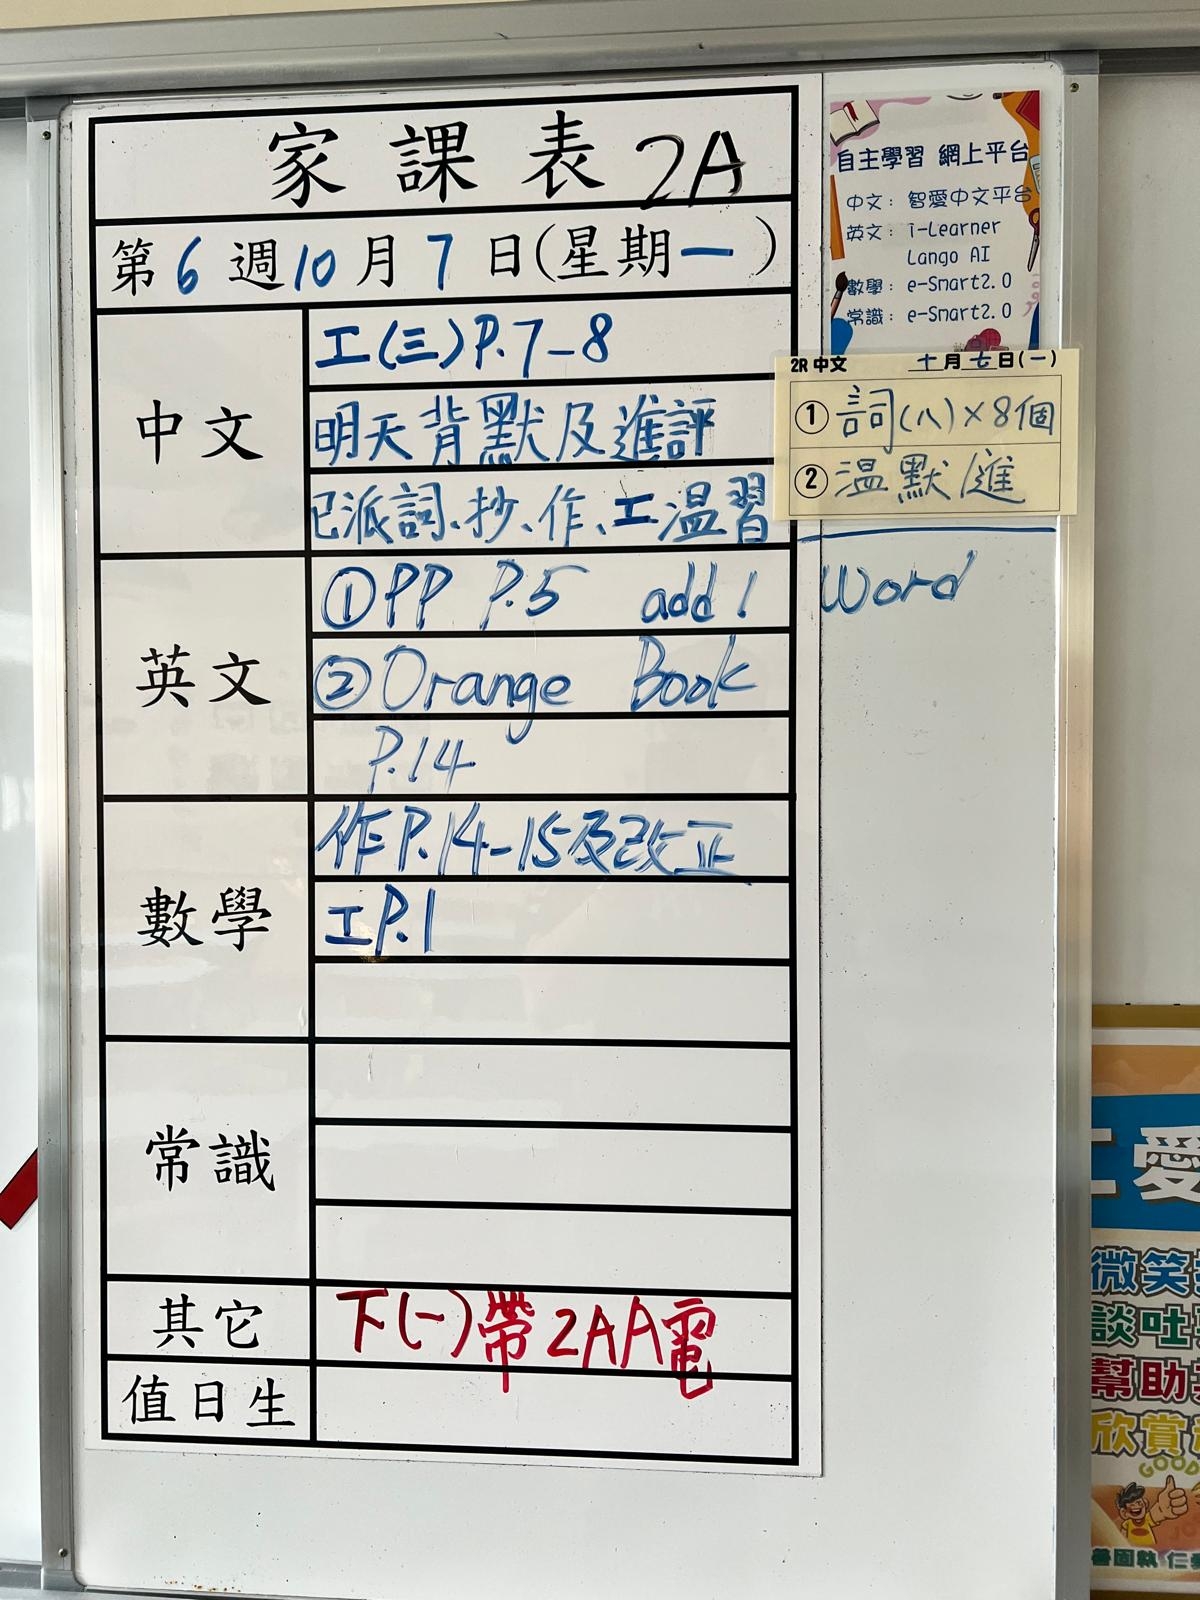 家課表 2A
第6週10月7日(星期一)
中文
工(三)P.7-8
明天背默及進評
已派詞、抄、作、工溫習
英文
①PP P.5 add 1 word
②Orange Book
P.14
數學
作P.14-15及改正
工P.1
常識
其它
下(一)帶2AA電
值日生
自主學習 網上平台
中文：智愛中文平台
英文：i-Learner
Lango AI
數學：e-Smart2.0
常識：e-Smart2.0
2R 中文 十月七日(一)
① 詞(八)×8個
② 溫默進
愛
微笑
談吐
幫助
欣賞
GOOD